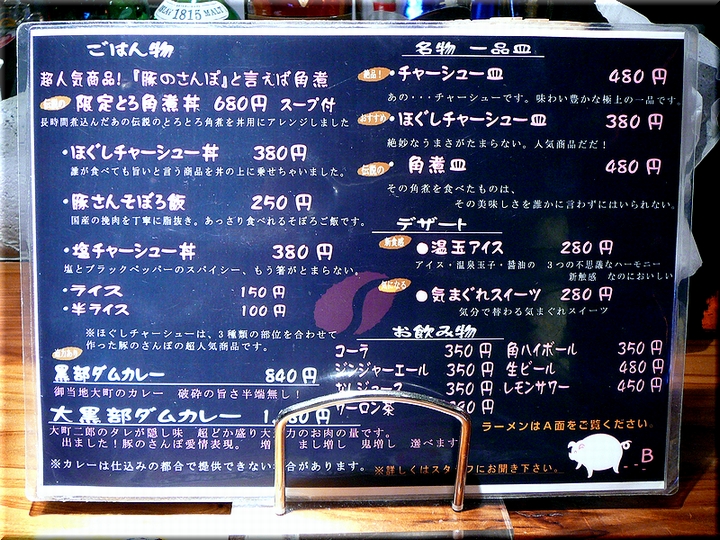 1815 MALT
ごはん物
超人気商品!『豚のさんぽ』と言えば角煮
限定とろ角煮丼 680円 スープ付
長時間煮込んだあの伝説のとろとろ角煮を丼用にアレンジしました
・ほぐしチャーシュー丼 380円
誰が食べても旨いと言う商品を丼の上に乗せちゃいました。
・豚さんそぼろ飯 250円
国産の挽肉を丁寧に脂抜き。あっさり食べれるそぼろご飯です。
・塩チャーシュー丼 380円
塩とブラックペッパーのスパイシー、もう箸がとまらない。
・ライス 150円
・半ライス 100円
※ほぐしチャーシューは、3種類の部位を合わせて
作った豚のさんぽの超人気商品です。
黒部ダムカレー 840円
御当地大町のカレー 破砕の旨さ半端無し!
大黒部ダムカレー
大町二郎のタレが隠し味 超どか盛り大
力のお肉の量です。
出ました!豚のさんぽ愛情表現。 増
まし増し 鬼増し 選べます
※カレーは仕込みの都合で提供できない場合があります。
名物 一品皿
絶品!
・チャーシュー皿 480円
あの・・・チャーシューです。味わい豊かな極上の一品です。
おすすめ
・ほぐしチャーシュー皿 380円
絶妙なうまさがたまらない。人気商品だだ!
伝説の
・角煮皿 480円
その角煮を食べたものは、
その美味しさを誰かに言わずにはいられない。
デザート
新食感
●温玉アイス 280円
アイス・温泉玉子・醤油の 3つの不思議なハーモニー
新触感 なのにおいしい
気になる
●気まぐれスイーツ 280円
気分で替わる気まぐれスイーツ
お飲み物
コーラ 350円
ジンジャーエール 350円
350円
ウーロン茶
角ハイボール 350円
生ビール 480円
レモンサワー 450円
ラーメンはA面をご覧ください。
※詳しくはスタッフにお聞き下さい。
B